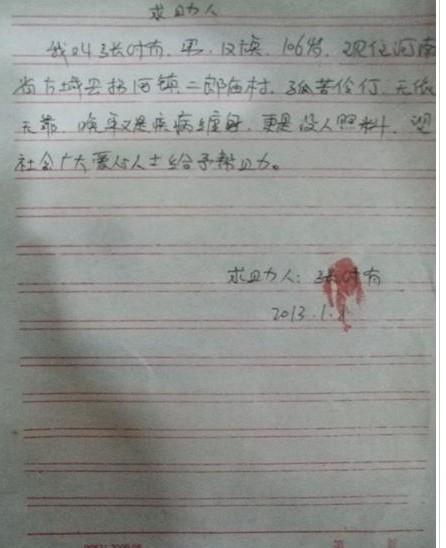 求助人
我叫张付有，男，汉族，106岁，现住河南
省方城县拐河镇二郎庙村，孤苦伶仃，无依
无靠，晚年又是疾病缠身，更是没人照料，望
社会广大爱心人士给予帮助。
求助人：张付有
2013.1.